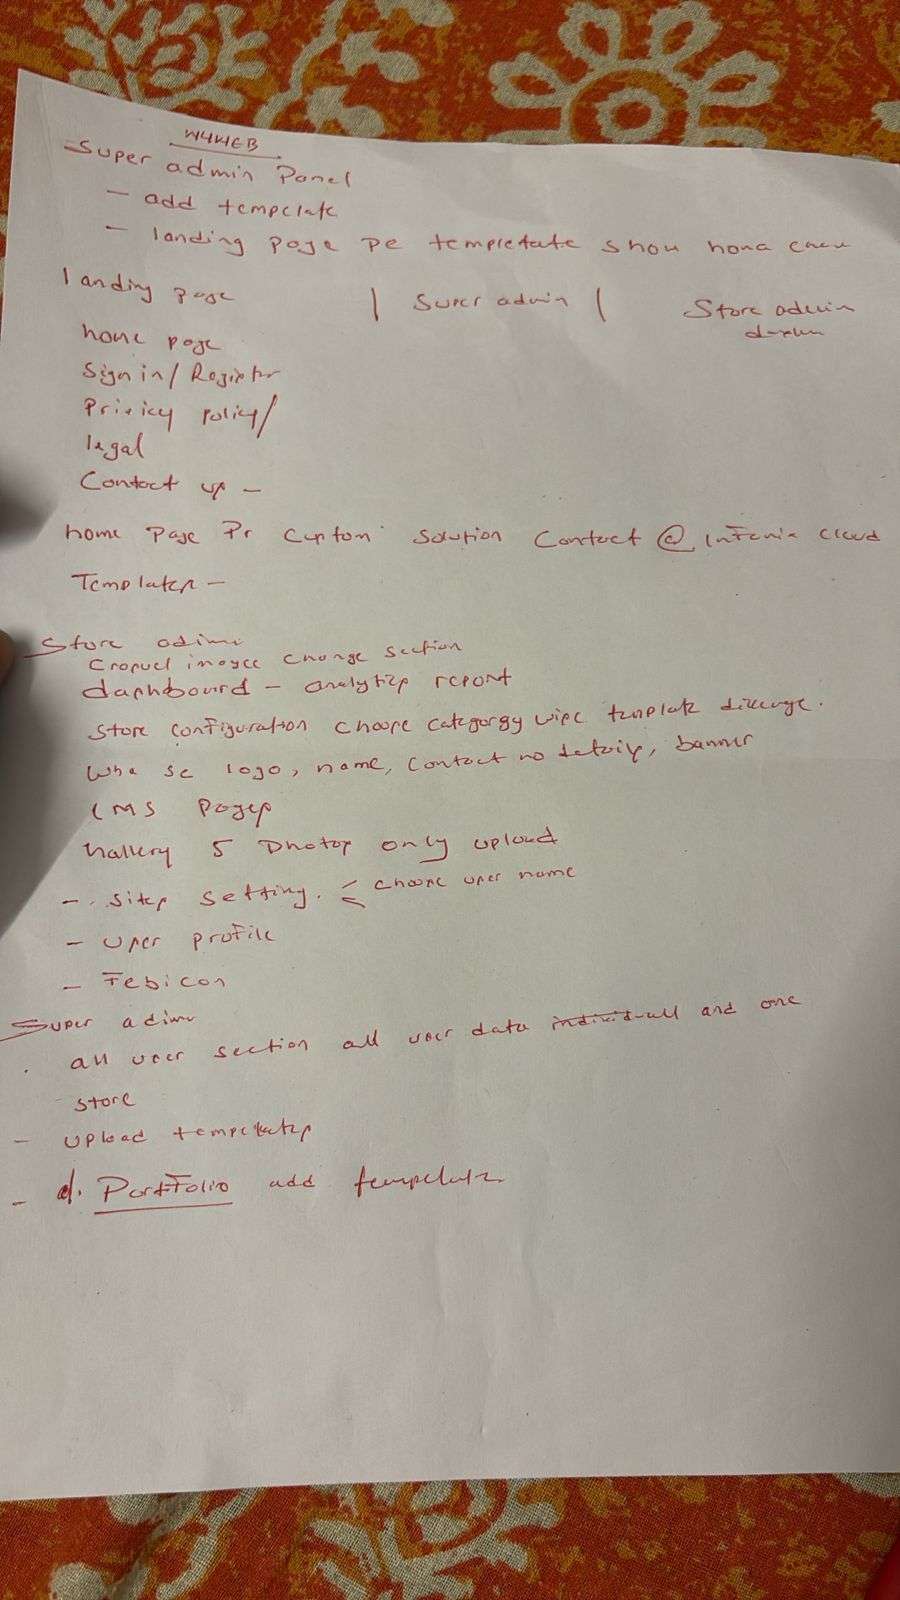 W4WEB
Super admin Panel
- add tempelate
- landing page pe templetate show hona chae
landing page | Super admin | Store admin
home page
Sign in / Register
Privicy policy /
legal
Contact us -
home Page Pr Custom Solution Contact @ Infonix Cloud
Templates -
Store adimi
change section
dashboard - analytics report
Store configuration choose category wise template
logo, name, contact no details, banner
CMS Pages
hallery 5 Photos only upload
- Sites setting. < choose user name
- user profile
- Febicon
Super adimi
. all user section all user data individuall and one
store
- upload tempelates
- d. Portfolio add tempelate